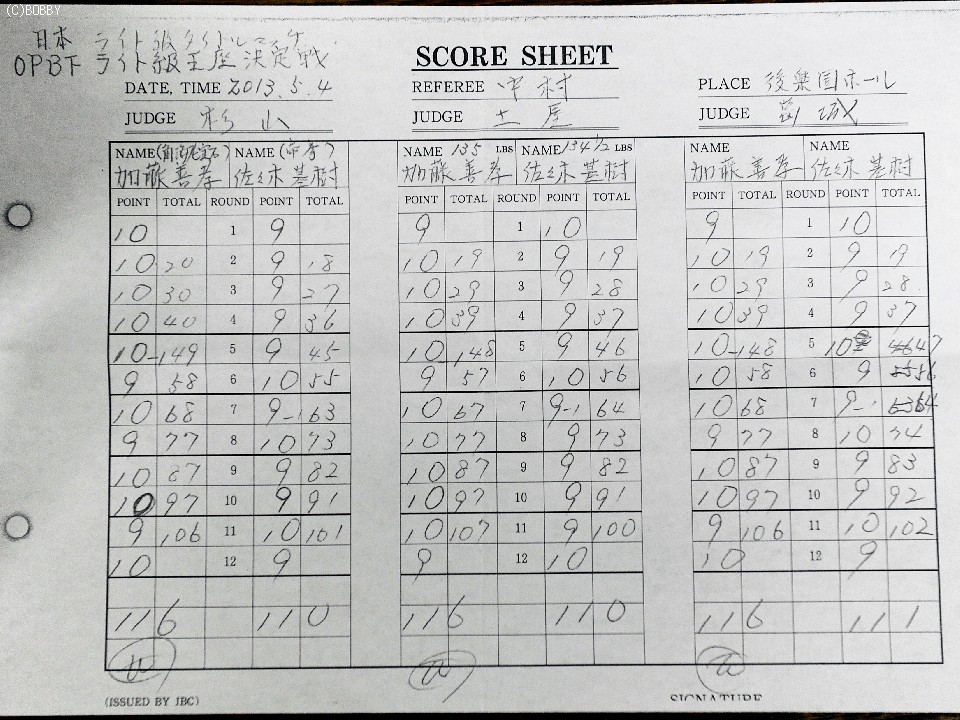 (C)BOBBY
日本 ライト級タイトルマッチ
OPBF ライト級王座決定戦
SCORE SHEET
DATE, TIME 2013.5.4 REFEREE 中村 PLACE 後楽園ホール
JUDGE 杉山 JUDGE 土屋 JUDGE 葛城
NAME (角海老宝石) NAME (帝拳) NAME 135 LBS NAME 134 1/2 LBS NAME NAME
加藤善孝 佐々木基樹 加藤善孝 佐々木基樹 加藤善孝 佐々木基樹
POINT TOTAL ROUND POINT TOTAL POINT TOTAL ROUND POINT TOTAL POINT TOTAL ROUND POINT TOTAL
10 1 9 9 1 10 9 1 10
10 20 2 9 18 10 19 2 9 19 10 19 2 9 19
10 30 3 9 27 10 29 3 9 28 10 29 3 9 28
10 40 4 9 36 10 39 4 9 37 10 39 4 9 37
10-1 49 5 9 45 10-1 48 5 9 46 10-1 48 5 10 47
9 58 6 10 55 9 57 6 10 56 10 58 6 9 56
10 68 7 9-1 63 10 67 7 9-1 64 10 68 7 9-1 64
9 77 8 10 73 10 77 8 9 73 9 77 8 10 74
10 87 9 9 82 10 87 9 9 82 10 87 9 9 83
10 97 10 9 91 10 97 10 9 91 10 97 10 9 92
9 106 11 10 101 10 107 11 9 100 9 106 11 10 102
10 12 9 9 12 10 10 12 9
116 110 116 110 116 111
(ISSUED BY JBC) SIGNATURE